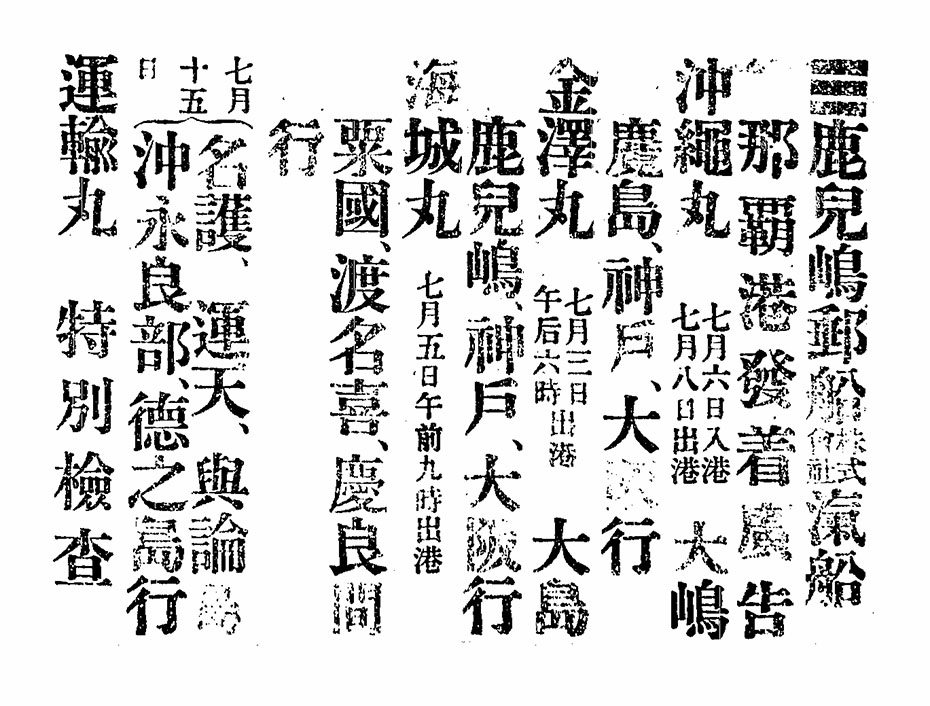 鹿兒嶋郵船株式會社滊船
那覇港發着廣告
沖繩丸 七月六日入港 七月八日出港 大嶋
麑島、神戶、大阪行
金澤丸 七月三日午后六時出港 大島
鹿兒嶋、神戶、大阪行
海城丸 七月五日午前九時出港
粟國、渡名喜、慶良間
行
七月十五日
名護、運天、與論島
沖永良部、德之島行
運輸丸 特別檢查